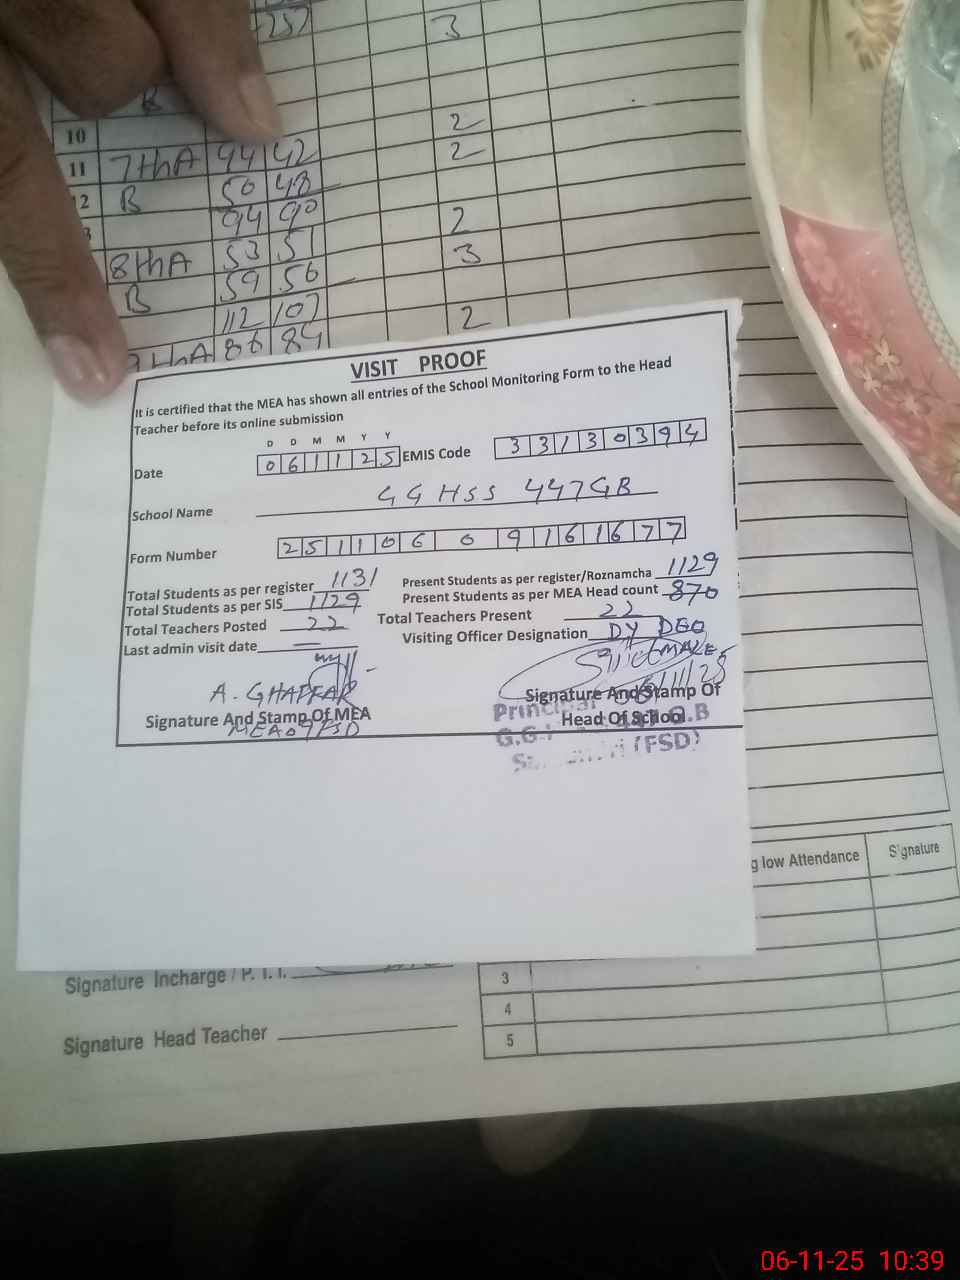 257 3
B
10 2
11 7thA 44 42 2
12 B 50 48
94 90 2
8thA 53 51 3
B 59 56
112 107 2
9thA 86 84
VISIT PROOF
It is certified that the MEA has shown all entries of the School Monitoring Form to the Head
Teacher before its online submission
D D M M Y Y
Date 0 6 1 1 2 5 EMIS Code 3 3 1 3 0 3 9 4
School Name GGHSS 447GB
Form Number 2 5 1 1 0 6 0 9 1 6 1 6 7 7
Total Students as per register 1131 Present Students as per register/Roznamcha 1129
Total Students as per SIS 1129 Present Students as per MEA Head count 870
Total Teachers Posted 22 Total Teachers Present 22
Last admin visit date Visiting Officer Designation DY DEO
MALE
A. GHAFFAR 06/11/25
Signature And Stamp Of MEA Signature And Stamp Of
Head Of School
MEA 09 FSD
Principal
G.B
(FSD)
g low Attendance Signature
Signature Incharge / P. T. I.
3
Signature Head Teacher
4
5
06-11-25 10:39